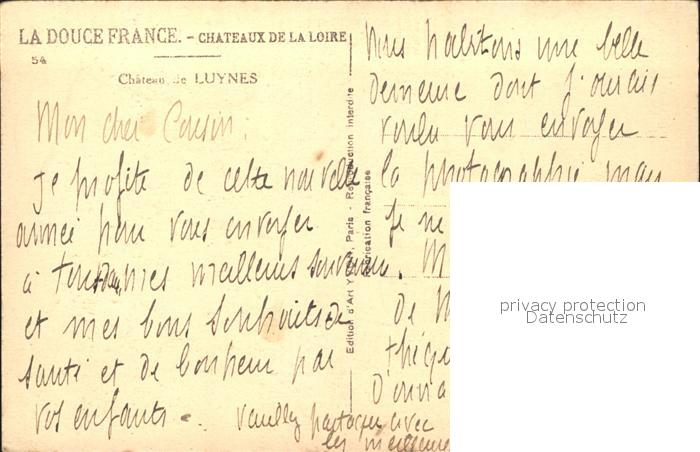 LA DOUCE FRANCE. - CHATEAUX DE LA LOIRE
54
Château de LUYNES
Mon cher Cousin :
Je profite de cette nouvelle
année pour vous envoyer
à tous mes meilleurs souvenirs.
et mes bons souhaits de
santé et de bonheur par
vos enfants -.
Veuillez partager avec
les meilleurs
Edition d'Art Paris - Reproduction interdite
Fabrication française
Nous habitons une belle
demeure dont j'aurais
voulu vous envoyer
la photographie mais
je ne
M
de M
D'ouvra
privacy protection
Datenschutz